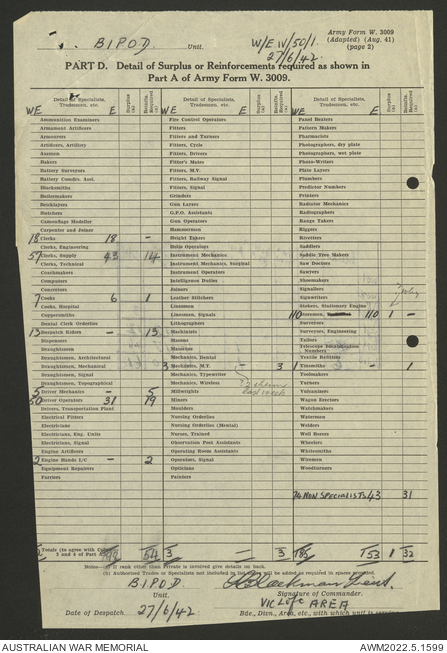 Army Form W. 3009
(Adapted) (Aug. 41)
(page 2)
B.I.P.O.D. Unit.
W/E IV/50/1.
27/6/42
PART D. Detail of Surplus or Reinforcements required as shown in
Part A of Army Form W. 3009.
Detail of Specialists, Tradesmen, etc. Surplus (a) Reinfts. Required (a)
Detail of Specialists, Tradesmen, etc. Surplus (a) Reinfts. Required (a)
Detail of Specialists, Tradesmen, etc. Surplus (a) Reinfts. Required (a)
WE E WE E WE E
Ammunition Examiners
Armament Artificers
Armourers
Artificers, Artillery
Axemen
Bakers
Battery Surveyors
Battery Comdrs. Asst.
Blacksmiths
Boilermakers
Bricklayers
Butchers
Camouflage Modeller
Carpenter and Joiner
18 Clerks 18 -
Clerks, Engineering
57 Clerks, Supply 43 14
Clerks, Technical
Coachmakers
Computers
Concretors
7 Cooks 6 1
Cooks, Hospital
Coppersmiths
Dental Clerk Orderlies
13 Despatch Riders - 13
Dispensers
Draughtsmen
Draughtsmen, Architectural
Draughtsmen, Mechanical
Draughtsmen, Signal
Draughtsmen, Topographical
5 Driver Mechanics - 5
50 Driver Operators 31 19
Drivers, Transportation Plant
Electrical Fitters
Electricians
Electricians, Eng. Units
Electricians, Signal
Engine Artificers
2 Engine Hands I/C - 2
Equipment Repairers
Farriers
Fire Control Operators
Fitters
Fitters and Turners
Fitters, Cycle
Fitters, Drivers
Fitter's Mates
Fitters, M.V.
Fitters, Railway Signal
Fitters, Signal
Grinders
Gun Layers
Gun Operators
G.P.O. Assistants
Hammermen
Height Takers
Helio Operators
Instrument Mechanics
Instrument Mechanics, Surgical
Instrument Operators
Intelligence Duties
Joiners
Leather Stitchers
Linesmen
Linesmen, Signals
Lithographers
Machinists
Masons
Masseurs
Mechanics, Dental
3 Mechanics, M.V. - 3
Mechanics, Typewriter
Mechanics, Wireless
Millwrights
Miners
Moulders
Nursing Orderlies
Nursing Orderlies (Mental)
Nurses, Trained
Observation Post Assistants
Operating Room Assistants
Operators, Signal
Opticians
Painters
Panel Beaters
Pattern Makers
Pharmacists
Photographers, dry plate
Photographers, wet plate
Photo-Writers
Plate Layers
Plumbers
Predictor Numbers
Printers
Radiator Mechanics
Radiographers
Range Takers
Riggers
Rivetters
Saddlers
Saddle Tree Makers
Saw Doctors
Sawyers
Shoemakers
Signallers
Signwriters
Stokers, Stationary Engine
110 Storemen, 110 1 -
Surveyors
Surveyors, Engineering
Tailors
Telescope Identification Numbers
Textile Refitters
1 Tinsmiths - 1
Toolmakers
Turners
Vulcanisers
Wagon Erectors
Watchmakers
Watermen
Welders
Well Borers
Wheelers
Whitesmiths
Wiremen
Woodturners
74 NON SPECIALISTS 43 31
Totals (to agree with Cols. 3 and 4 of Part A) 54 3 - 3 185 153 1 32
Notes—If rank other than Private is involved give details on back.
(b) Authorised Trades or Specialists not included in list above will be added as required in spaces provided.
B.I.P.O.D.
Unit.
Signature of Commander.
VIC L of C AREA
Date of Despatch 27/6/42
Bde., Divn., Area, etc., with which unit is serving
AUSTRALIAN WAR MEMORIAL
AWM2022.5.1594